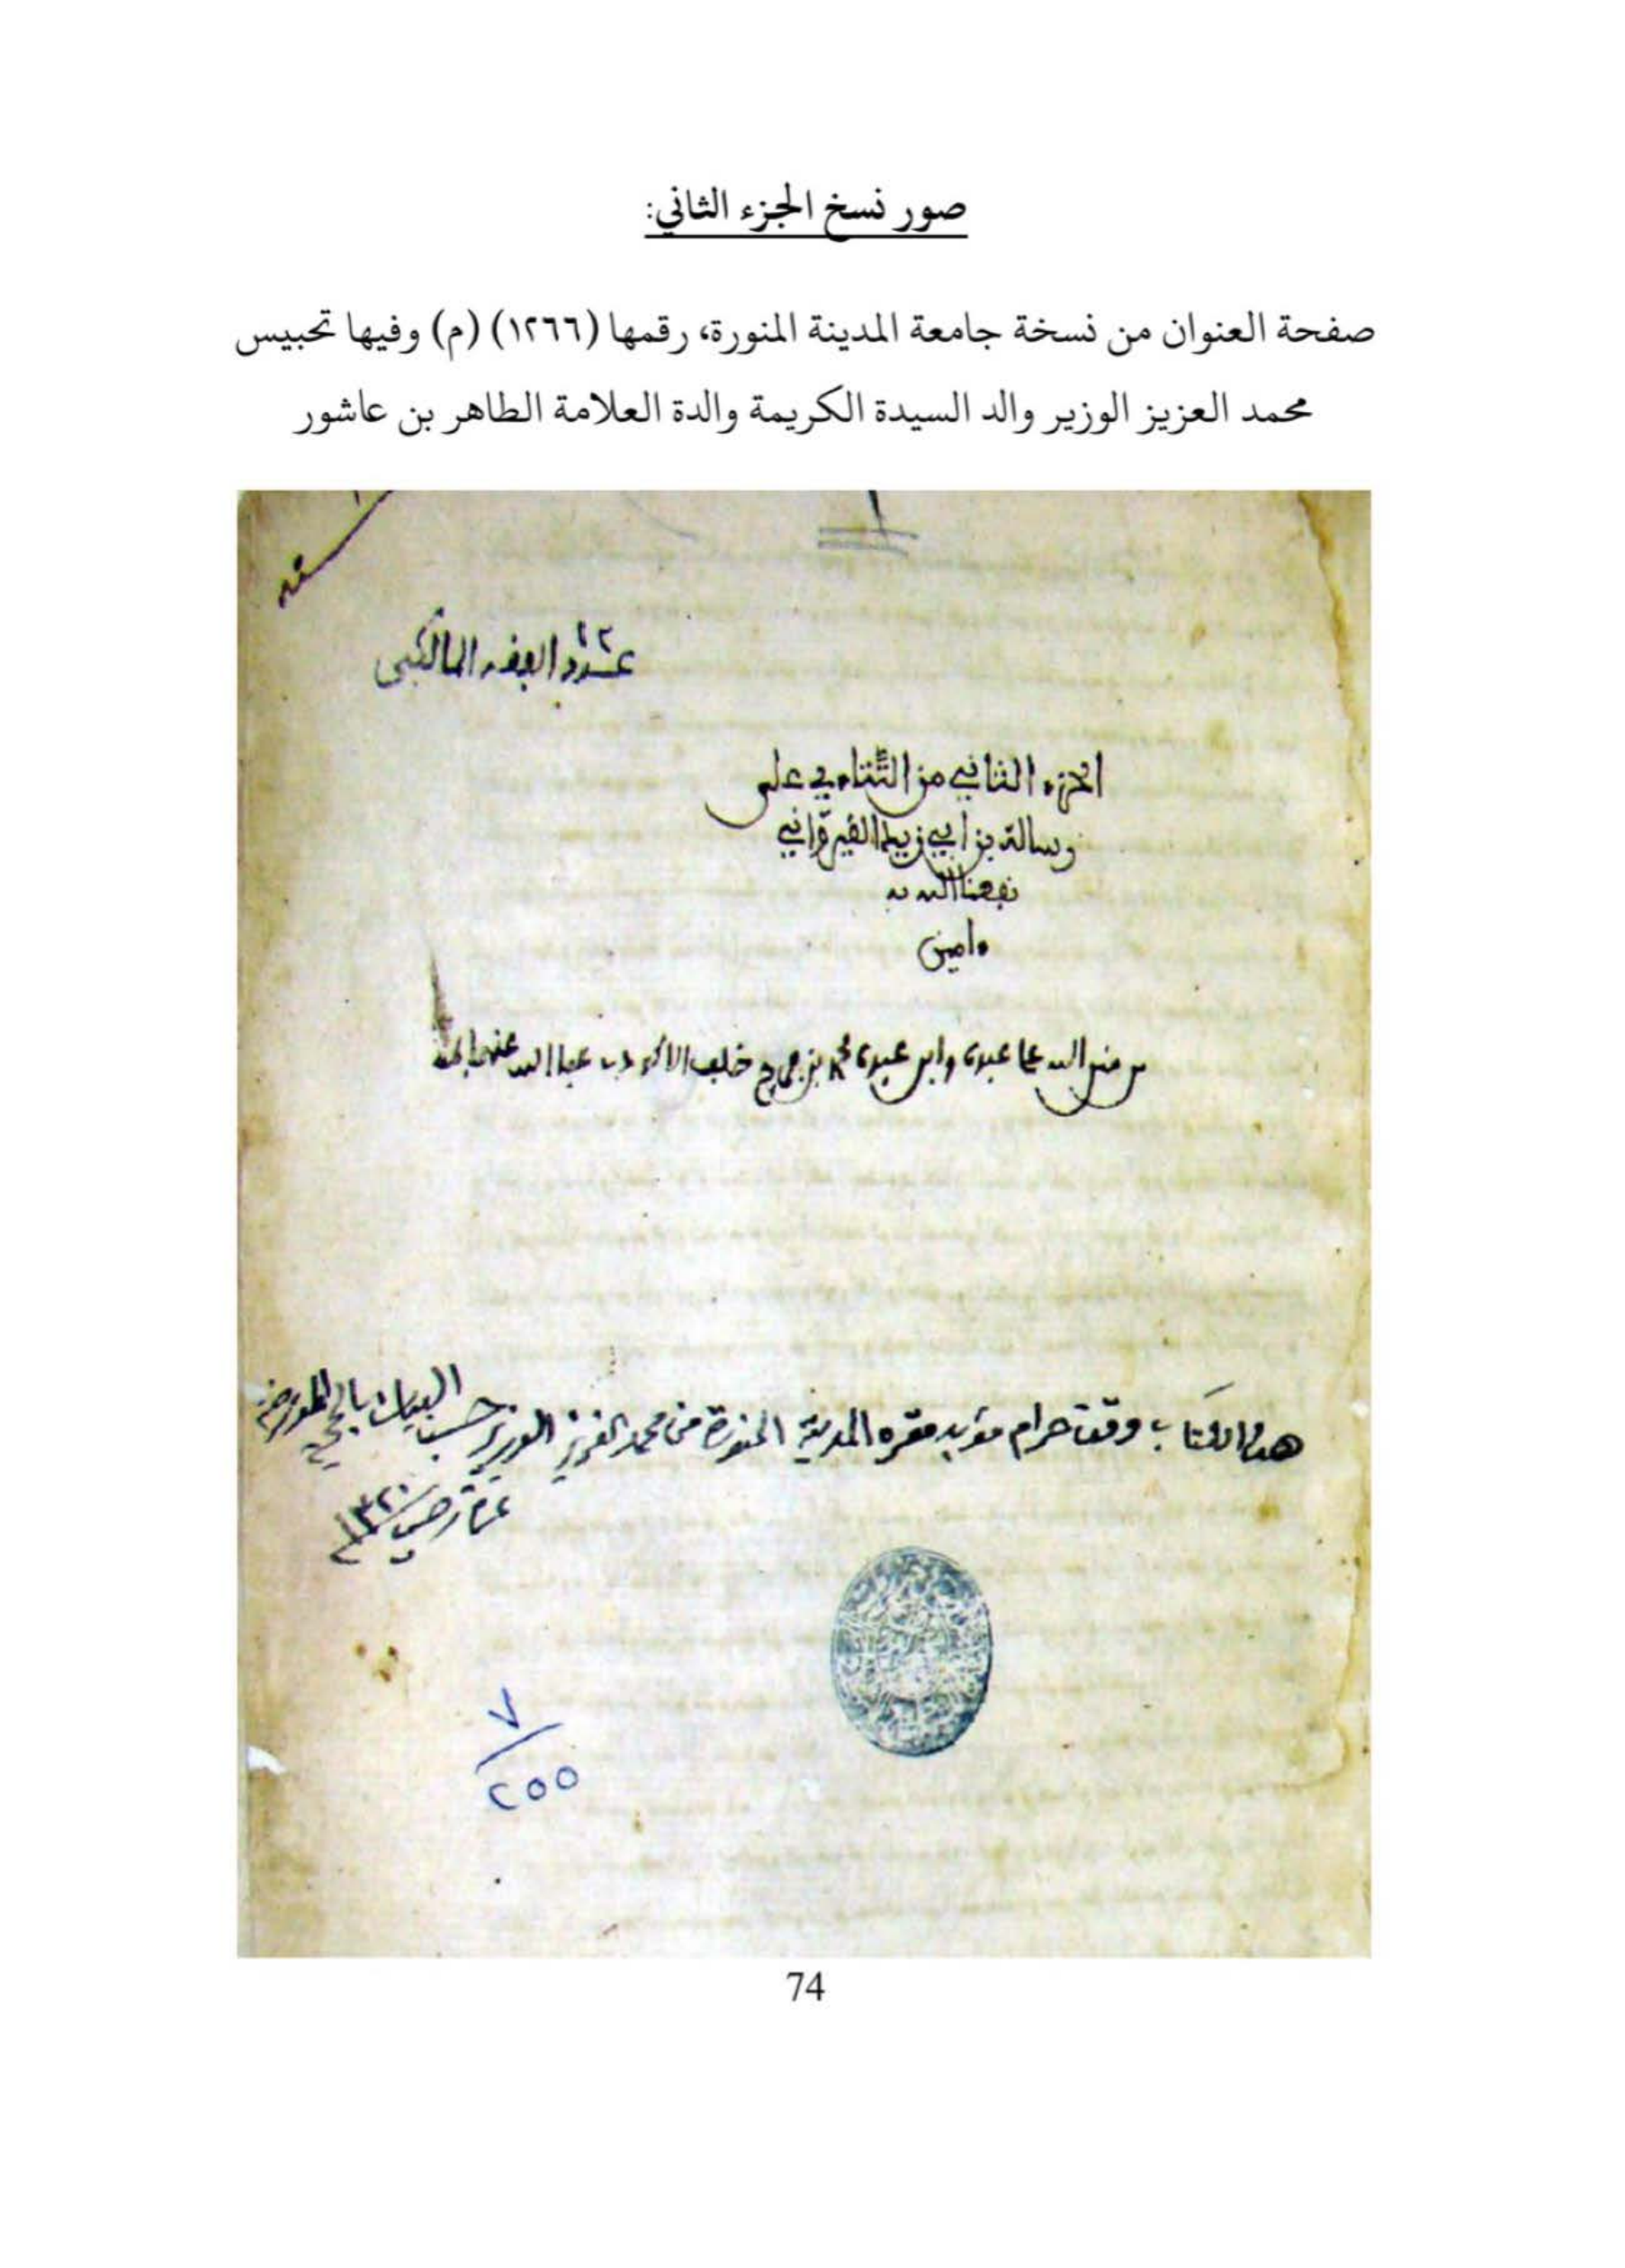 صور نسخ الجزء الثاني:
صفحة العنوان من نسخة جامعة المدينة المنورة، رقمها (١٢٦٦) (م) وفيها تحبيس
محمد العزيز الوزير والد السيدة الكريمة والدة العلامة الطاهر بن عاشور
١٢
الفقه المالكي
الجزء الثاني من التتاءي على
رسالة بن ابي زيد القيرواني
نفعنا الله به
ءامين
من الله على عبده وابن عبده محمد بن خلف
هذا الكتاب وقف حرام مؤبد مقره المدينة المنورة من محمد العزيز الوزير حسب البيان بالحجة المؤرخة
١٣٢٠
٧
٢٥٥
74